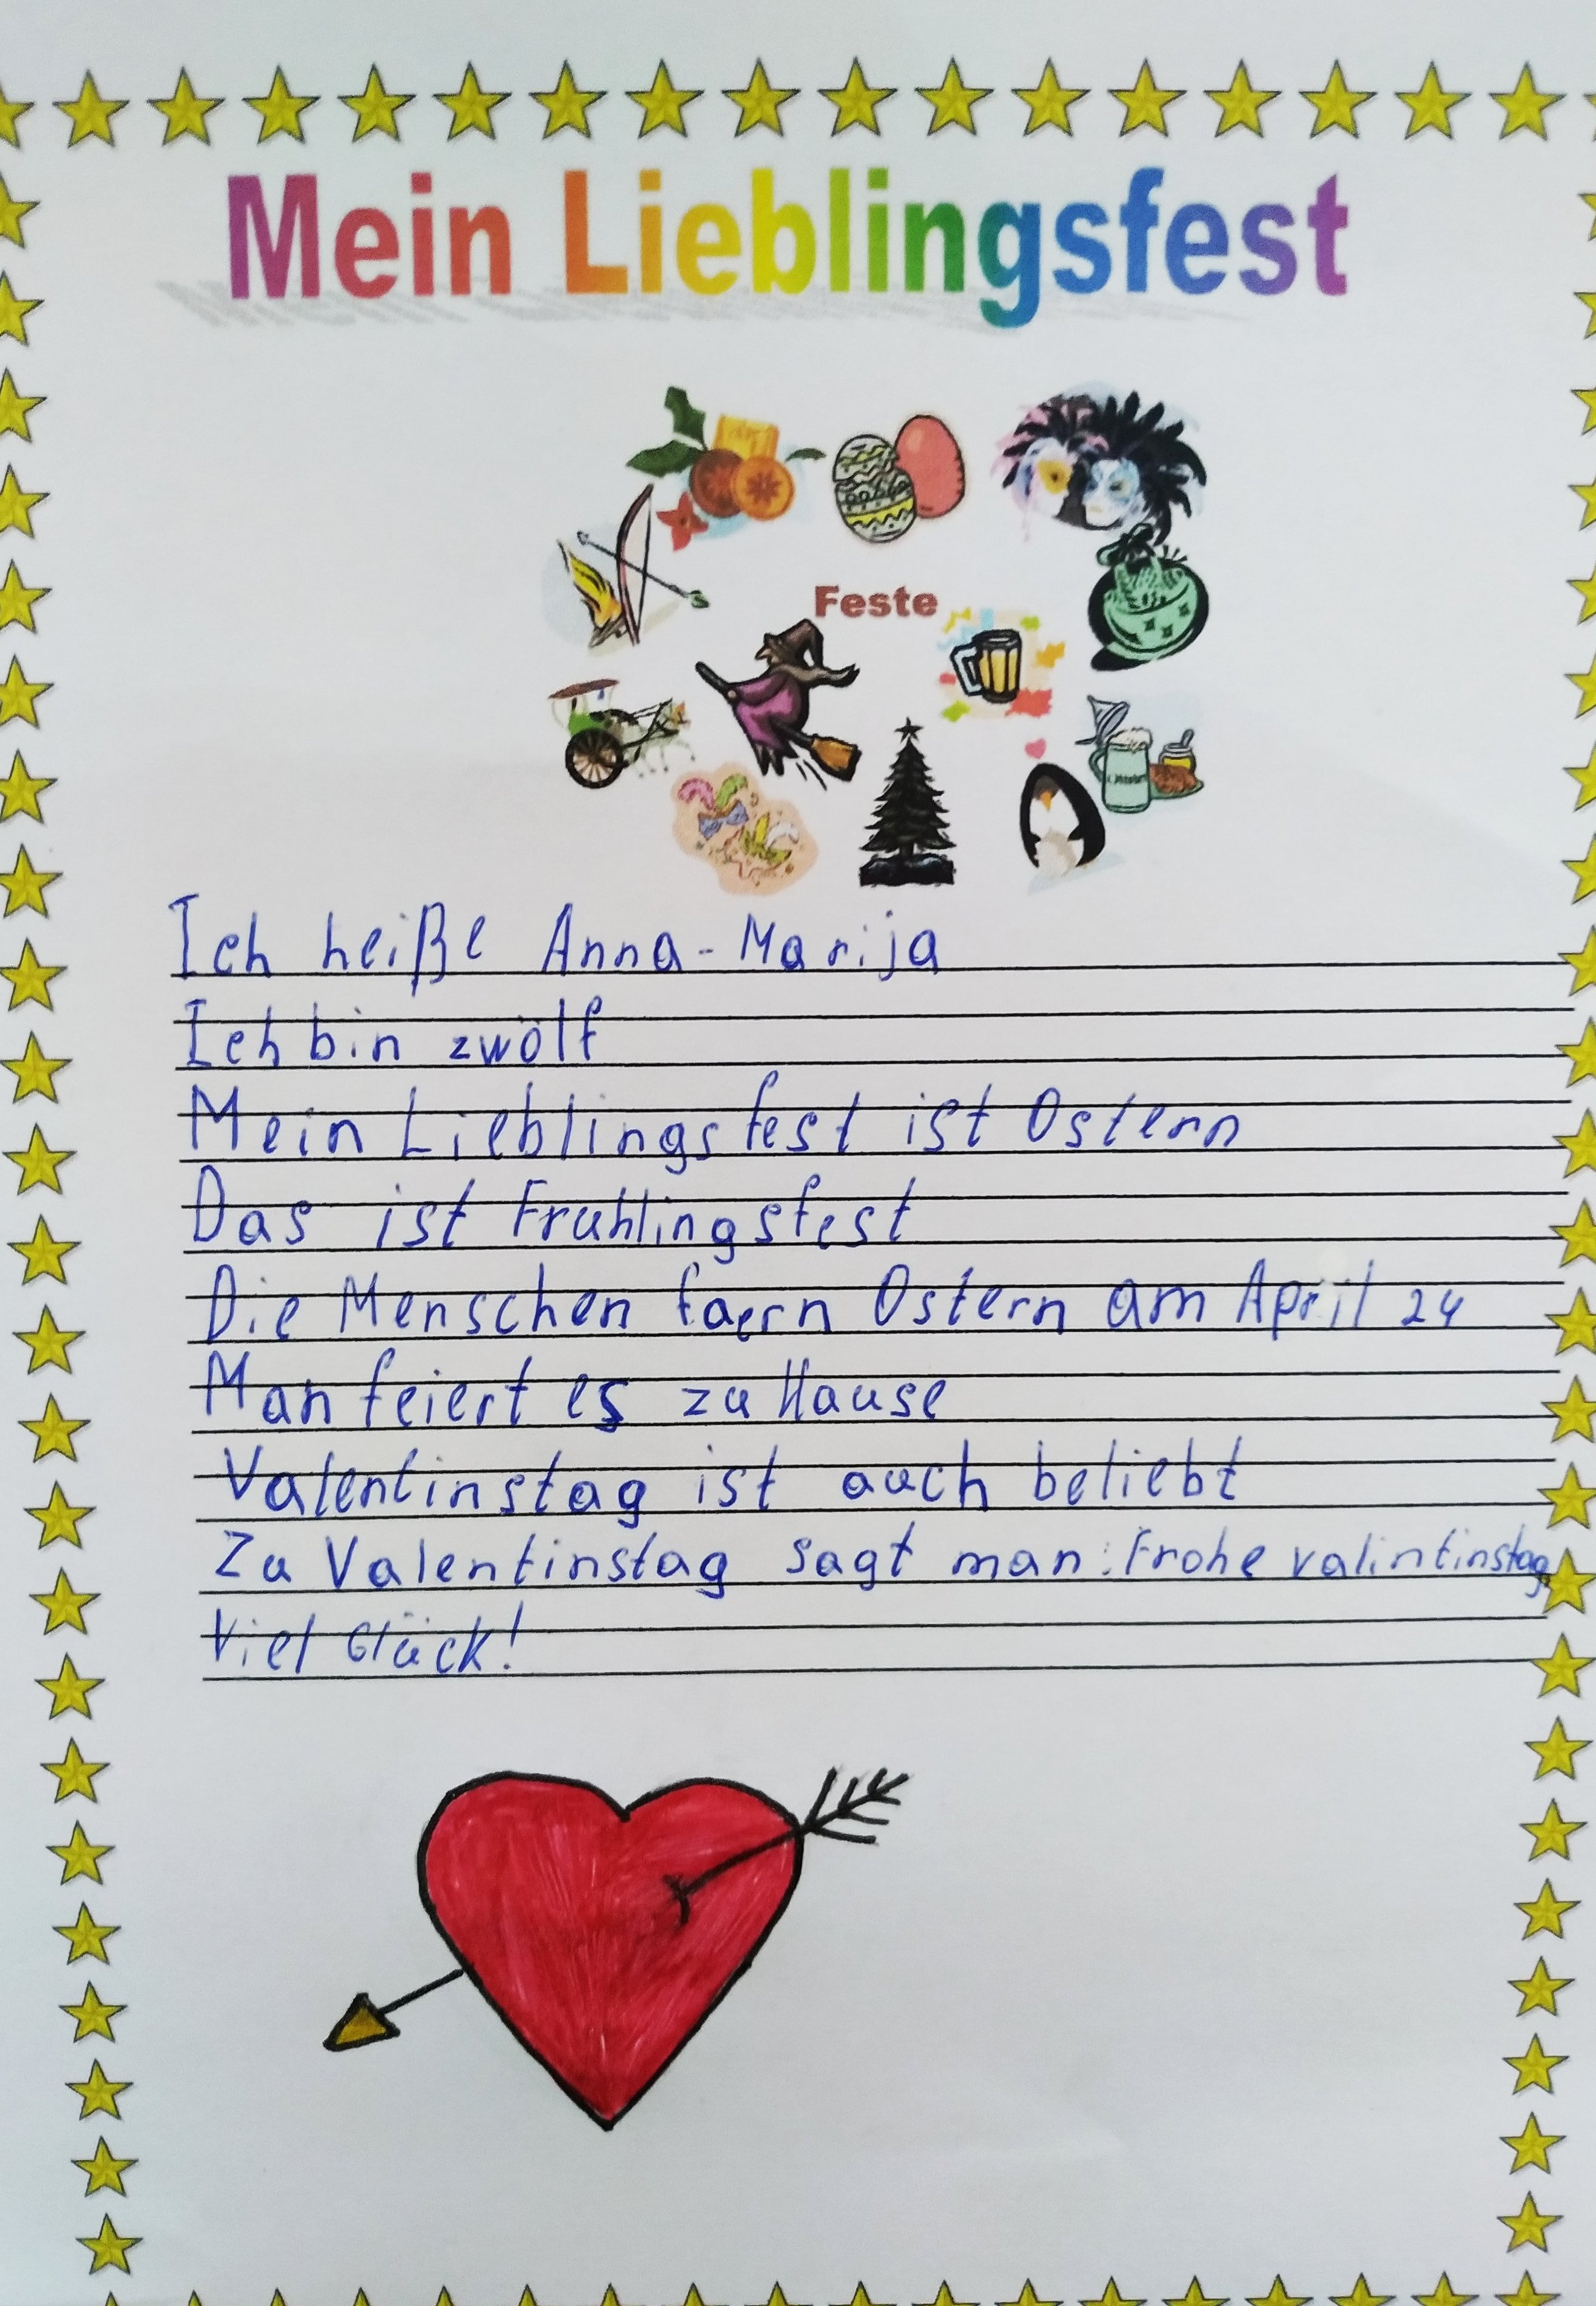 Mein Lieblingsfest
Feste
Ich heiße Anna-Marija
Ich bin zwölf
Mein Lieblingsfest ist Ostern
Das ist Fruhlingsfest
Die Menschen faern Ostern am April 24
Man feiert es zu Hause
Valentinstag ist auch beliebt
Zu Valentinstag sagt man: Frohe valintinstag
Viel Glück!